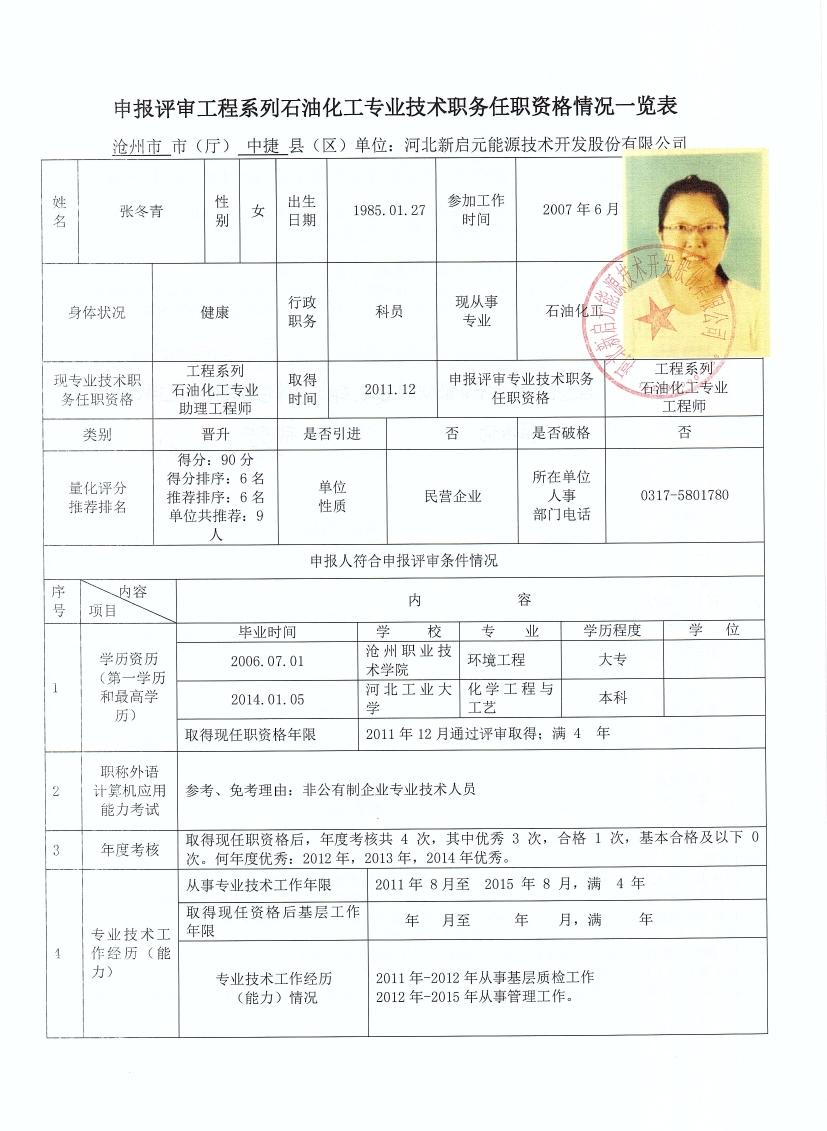 申报评审工程系列石油化工专业技术职务任职资格情况一览表
沧州市 市（厅） 中捷 县（区）单位：河北新启元能源技术开发股份有限公司
姓名 张冬青 性别 女 出生日期 1985.01.27 参加工作时间 2007年6月
身体状况 健康 行政职务 科员 现从事专业 石油化工
新启元能源技术开发股份有限公司
现专业技术职务任职资格 工程系列石油化工专业助理工程师 取得时间 2011.12 申报评审专业技术职务任职资格 工程系列石油化工专业工程师
类别 晋升 是否引进 否 是否破格 否
量化评分推荐排名
得分：90分
得分排序：6名
推荐排序：6名
单位共推荐：9人
单位性质 民营企业 所在单位人事部门电话 0317-5801780
申报人符合申报评审条件情况
序号 内容 项目 内 容
1 学历资历（第一学历和最高学历）
毕业时间 学 校 专 业 学历程度 学 位
2006.07.01 沧州职业技术学院 环境工程 大专
2014.01.05 河北工业大学 化学工程与工艺 本科
取得现任职资格年限 2011年12月通过评审取得；满 4 年
2 职称外语计算机应用能力考试 参考、免考理由：非公有制企业专业技术人员
3 年度考核 取得现任职资格后，年度考核共 4 次，其中优秀 3 次，合格 1 次，基本合格及以下 0
次。何年度优秀：2012年，2013年，2014年优秀。
4 专业技术工作经历（能力）
从事专业技术工作年限 2011年 8月至 2015年 8月，满 4年
取得现任资格后基层工作年限 年 月至 年 月，满 年
专业技术工作经历（能力）情况
2011年-2012年从事基层质检工作
2012年-2015年从事管理工作。